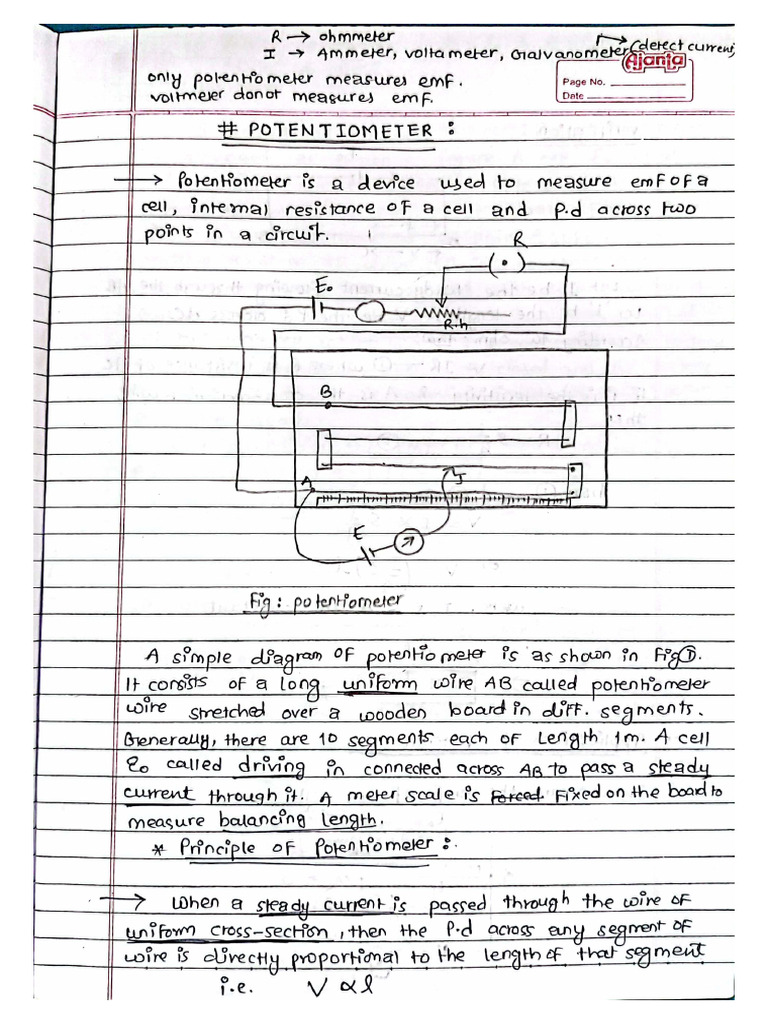 R → ohmmeter
I → Ammeter, voltameter, Galvanometer → (detect current)
only potentiometer measures emf.
voltmeter donot measures emf.
Ajanta
Page No.
Date
# POTENTIOMETER :
→ Potentiometer is a device used to measure emf of a
cell, internal resistance of a cell and P.d across two
points in a circuit.
R
( • )
E₀
R.h
B
J
A
E
Fig: potentiometer
A simple diagram of potentiometer is as shown in Fig①.
It consists of a long uniform wire AB called potentiometer
wire stretched over a wooden board in diff. segments.
Generally, there are 10 segments each of Length 1m. A cell
E₀ called driving in connected across AB to pass a steady
current through it. A meter scale is Forced Fixed on the board to
measure balancing length.
* Principle of Potentiometer :.
→ When a steady current is passed through the wire of
uniform cross-section, then the P.d across any segment of
wire is directly proportional to the length of that segment
i.e. V ∝ l